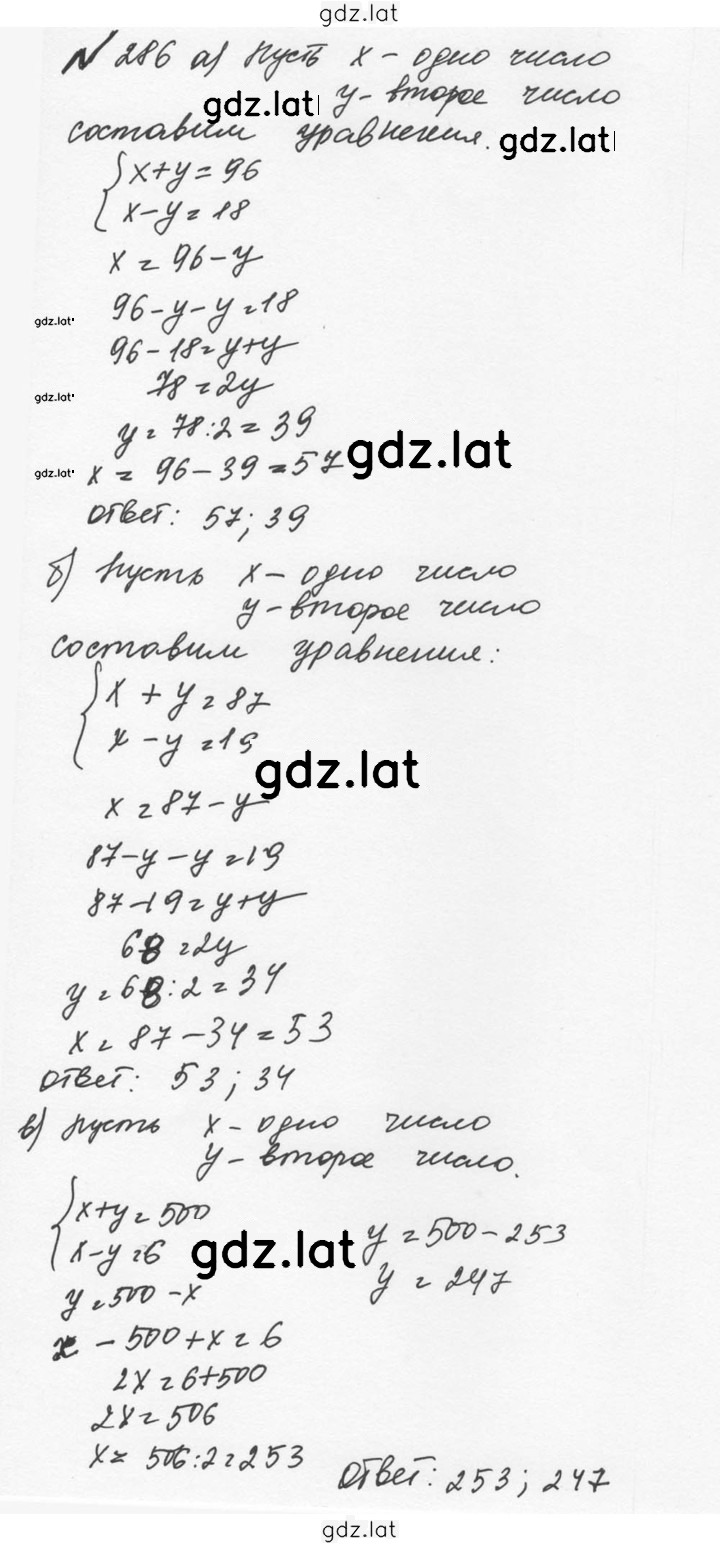 gdz.lat
№ 286 а) Пусть x - одно число
gdz.lat y - второе число
составим уравнения. gdz.lat
x+y=96
x-y=18
x = 96-y
96-y-y=18
gdz.lat
96-18=y+y
78=2y
gdz.lat
y=78:2=39
gdz.lat
x = 96-39=57
gdz.lat
ответ: 57; 39
б) Пусть x - одно число
y - второе число
составим уравнения:
x+y=87
x-y=19
gdz.lat
x=87-y
87-y-y=19
87-19=y+y
68=2y
y=68:2=34
x=87-34=53
ответ: 53; 34
в) Пусть x - одно число
y - второе число.
x+y=500
x-y=6
gdz.lat
y=500-x
x-500+x=6
2x=6+500
2x=506
x=506:2=253
y=500-253
y=247
ответ: 253; 247
gdz.lat